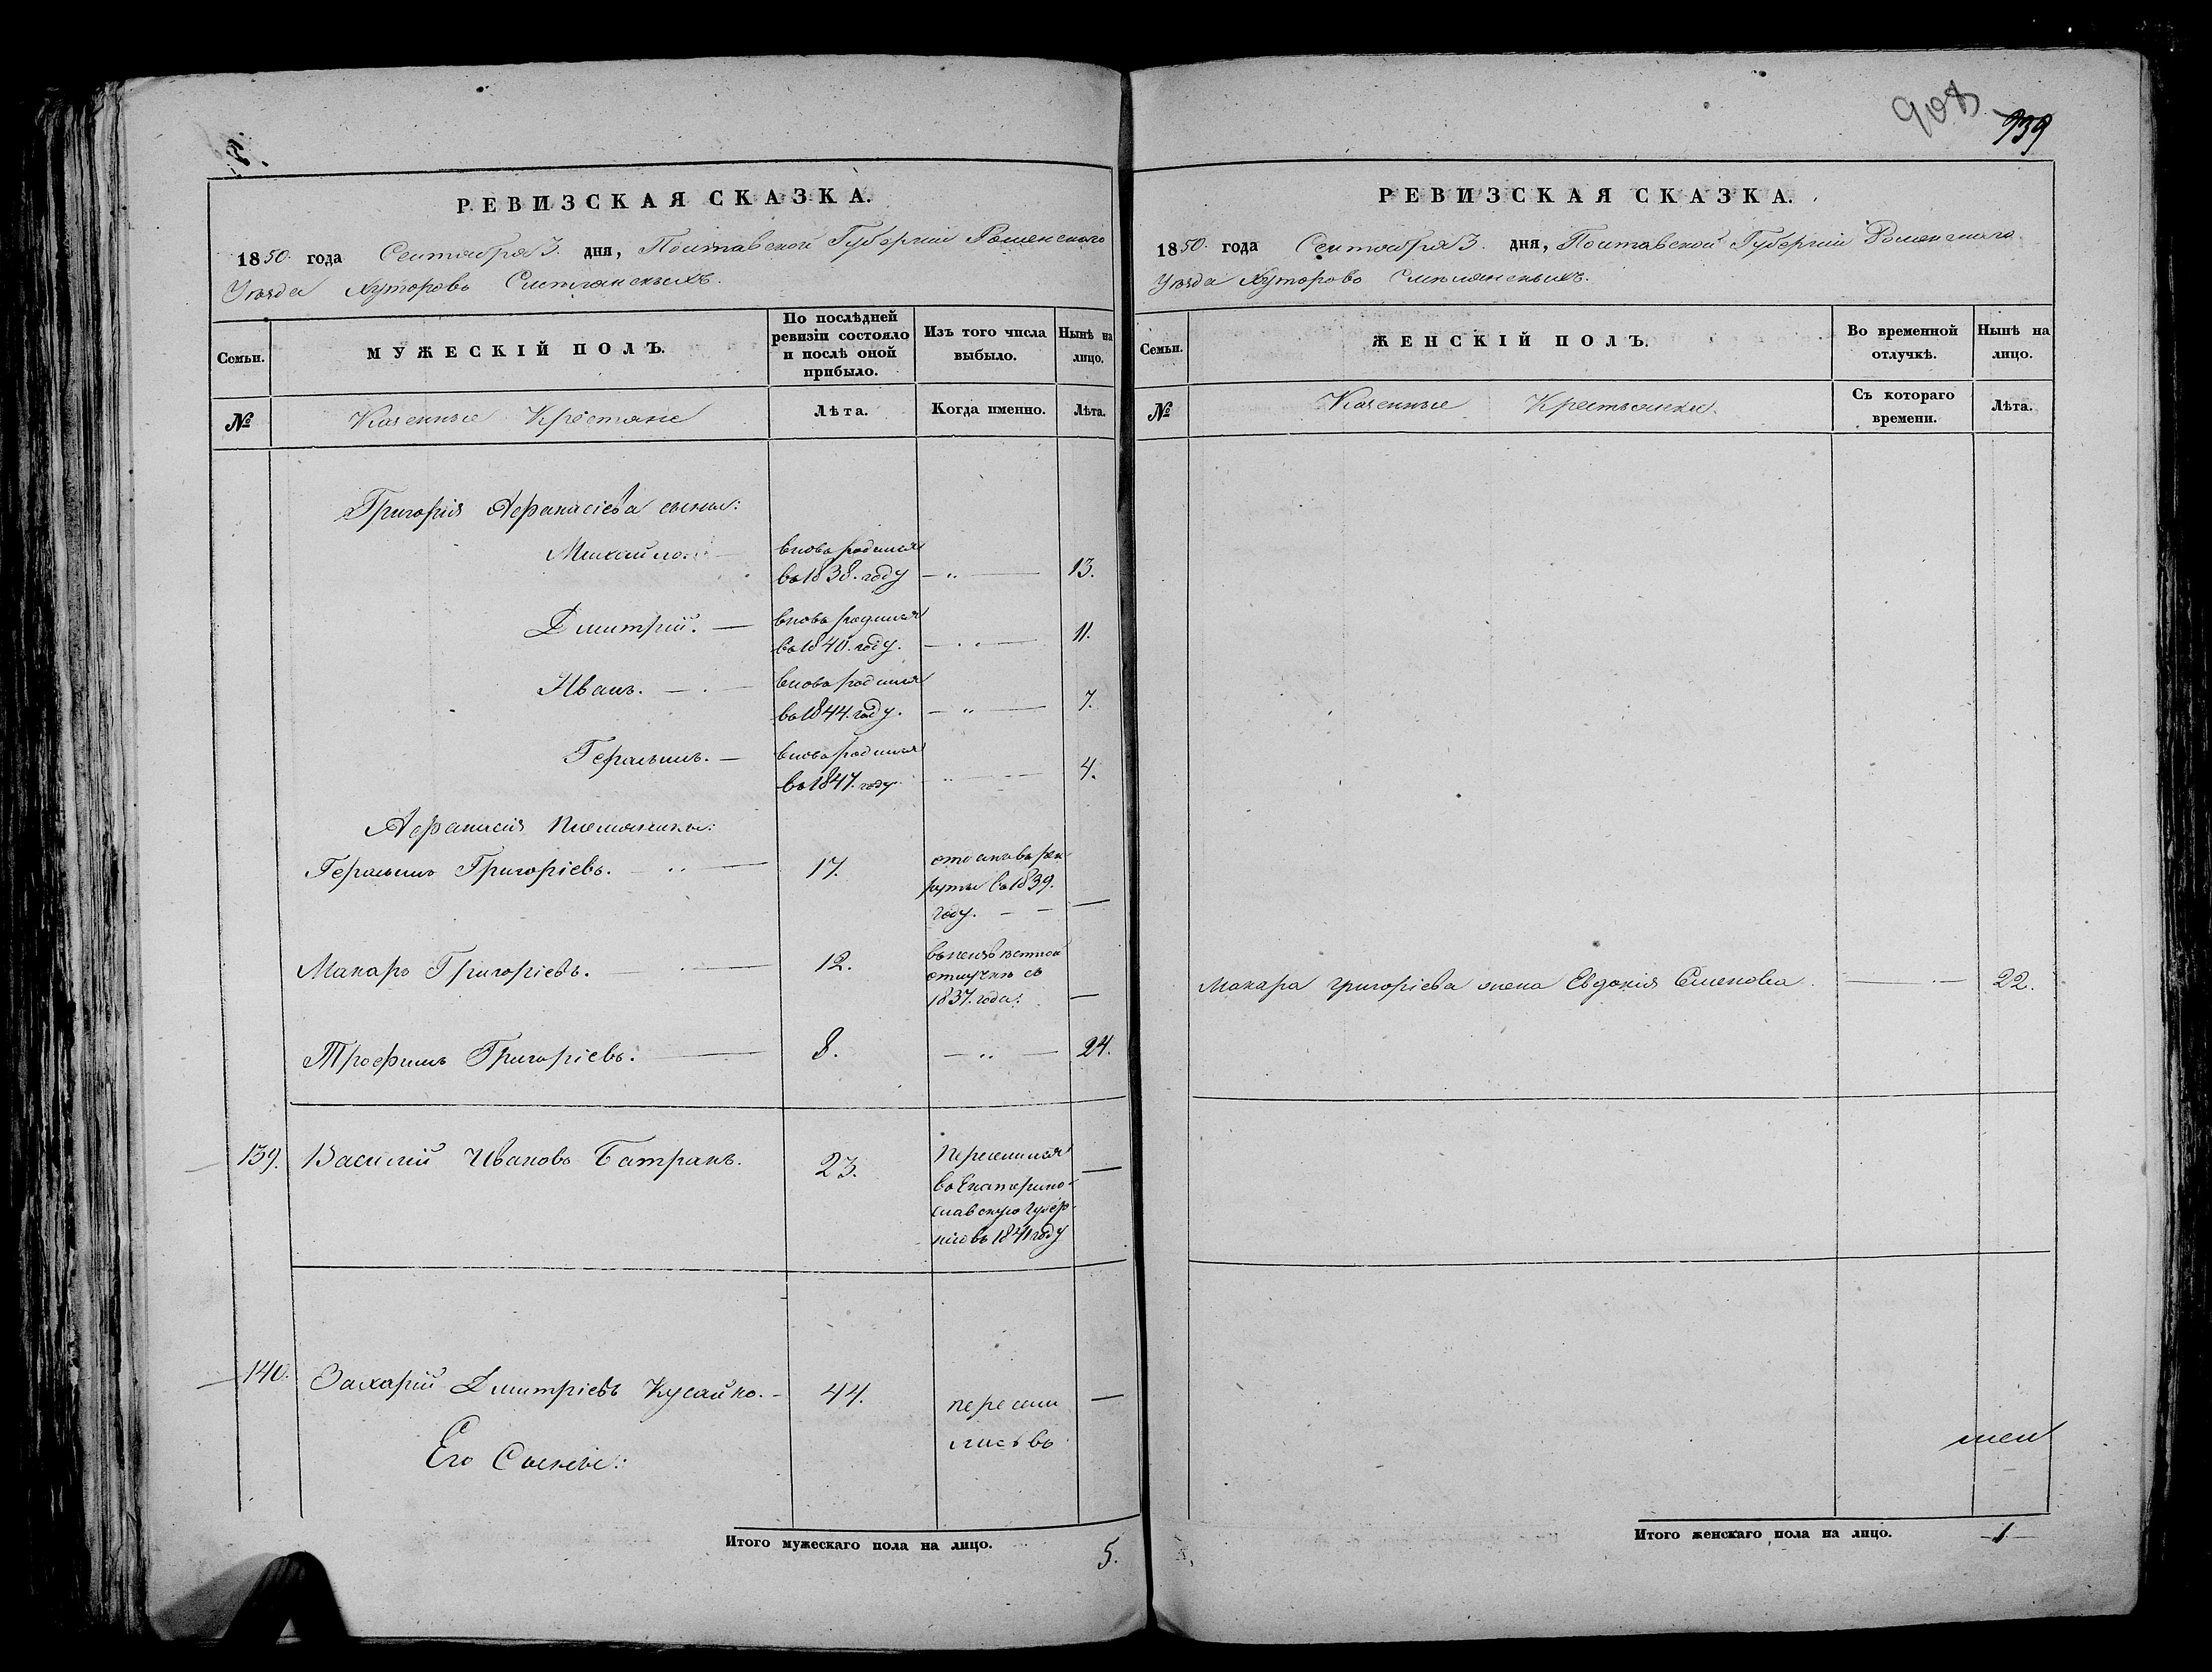 РЕВИЗСКАЯ СКАЗКА.
1850. года Сентября 3. дня, Полтавской Губернии Роменского
Уезда Хуторовъ Смелянскихъ.
Семьи.
МУЖЕСКІЙ ПОЛЪ.
По послѣдней
ревизіи состояло
и послѣ оной
прибыло.
Изъ того числа
выбыло.
Нынѣ на
лицо.
№
Казенные Крестяне
Лѣта.
Когда именно.
Лѣта.
Григорія Афанасіева сыны:
Михайло. вновь родился
въ 1838. году 13.
Дмитрій. вновь родился
въ 1840. году. 11.
Иванъ. вновь родился
въ 1844. году. 7.
Герасимъ. вновь родился
въ 1847. году. 4.
Афанасія племяники:
Герасимъ Григоріевъ. 17. отданъ въ рек
руты въ 1839.
году.
Макаръ Григоріевъ. 12. въ неизвестной
отлучке съ
1837. года.
Трофимъ Григоріевъ. 8. 24.
139. Василий Ивановъ Батракъ. 23. Переселился
въ Екатерино
славскую Губер
нію въ 1841 году
140. Захарій Дмитріевъ Кусайко. 44. пересели
лись въ
Его Сыновья:
Итого мужескаго пола на лицо. 5.
908
939
РЕВИЗСКАЯ СКАЗКА.
1850. года Сентября 3. дня, Полтавской Губерніи Роменского
Уезда Хуторовъ Смелянскихъ.
Семьи.
ЖЕНСКІЙ ПОЛЪ.
Во временной
отлучкѣ.
Нынѣ на
лицо.
№
Казенные Крестьянки.
Съ котораго
времени.
Лѣта.
Макара Григоріева жена Евдокія Семенова 22.
Итого женскаго пола на лицо. 1